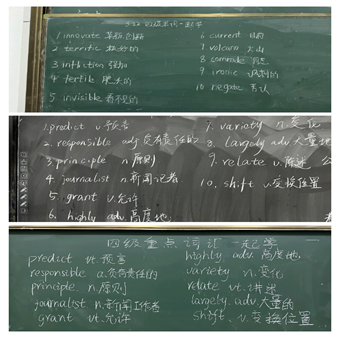 四级单词一起学
1 innovate 革新 创新
2 terrific 极好的
3 infliction 强加
4 fertile 肥沃的
5 invisible 看不见的
6 current 当前
7 volcano 火山
8 comrade 同志
9 ironic 讽刺的
10 negate 否认
1. predict v.预言
2. responsible adj 负有责任的
3. principle n.原则
4. journalist n.新闻记者
5. grant v.允许
6. highly adv.高度地
7. variety n.变化
8. largely adv.大量地
9. relate v.陈述
10. shift v.变换位置
四级重点词汇一起学
predict vt.预言
responsible a.负有责任的
principle n.原则
journalist n.新闻工作者
grant vt.允许
highly adv.高度地
variety n.变化
relate vt.讲述
largely adv.大量的
shift v.变换位置